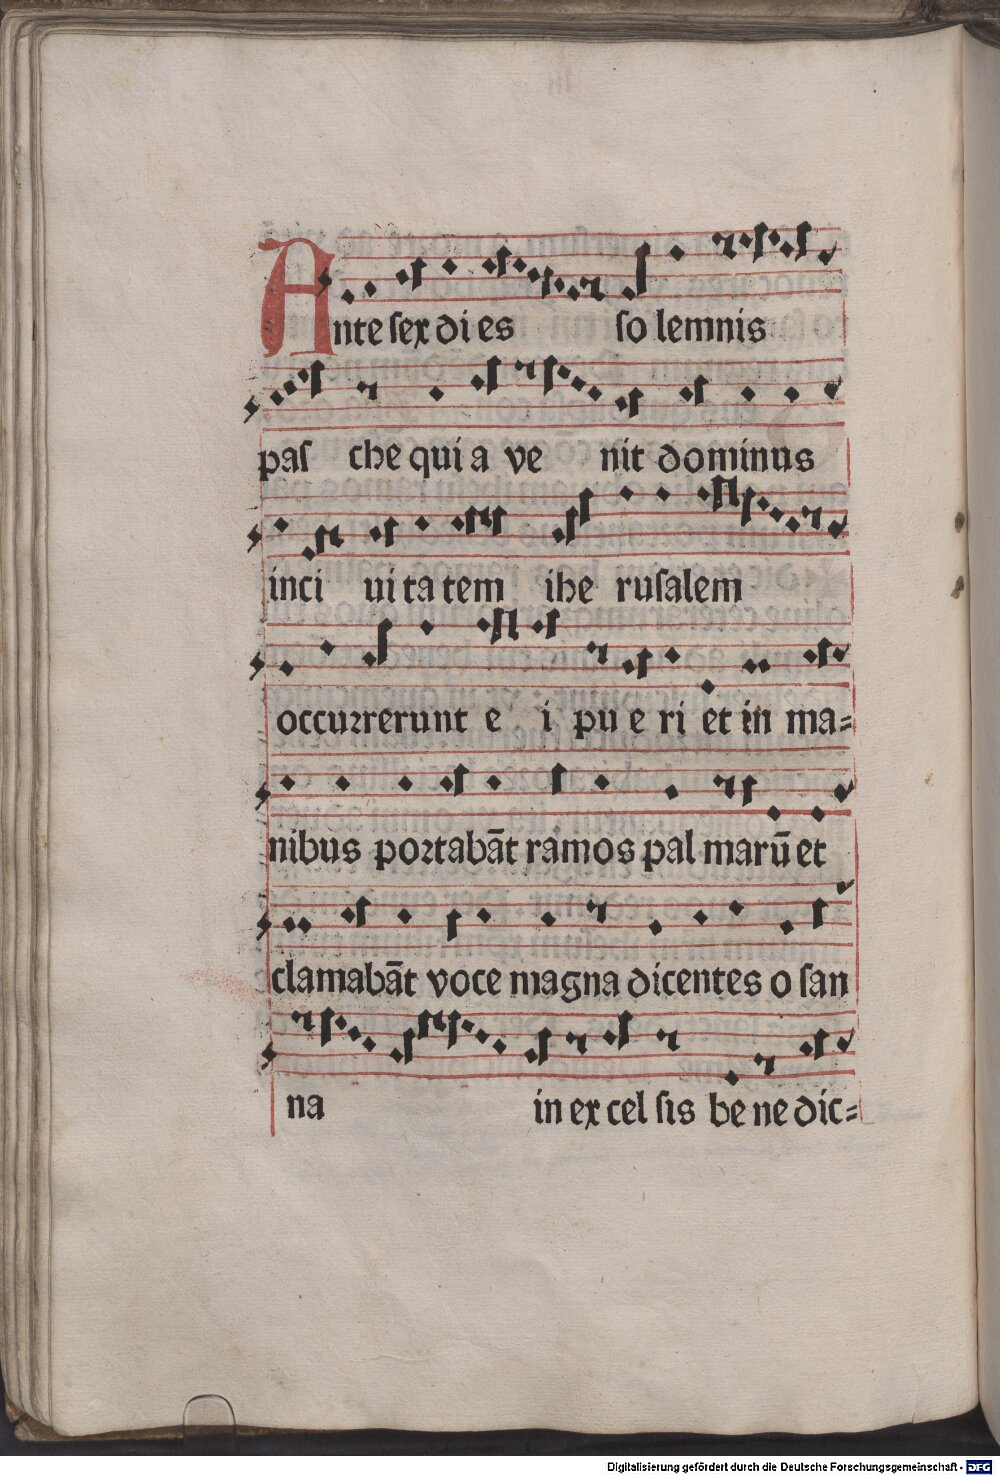 Ante sex di es so lemnis
pas che qui a ve nit dominus
inci ui ta tem ihe rusalem
occurrerunt e i pu e ri et in ma=
nibus portabāt ramos pal marū et
clamabāt voce magna dicentes o san
na in ex cel sis be ne dic=
Digitalisierung gefördert durch die Deutsche Forschungsgemeinschaft - DFG